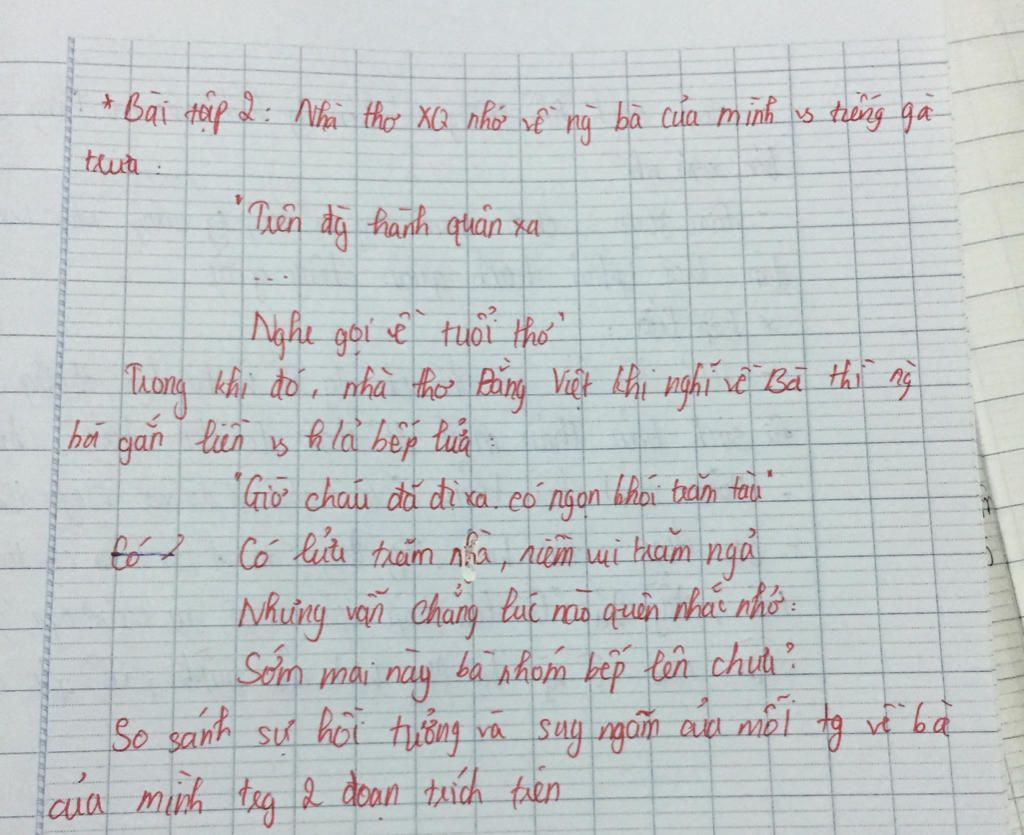 * Bài tập 2: Nhà thơ XQ nhớ về ng bà của mình vs tiếng gà
trưa:
"Trên đg hành quân xa
...
Nghe gọi về tuổi thơ"
Trong khi đó, nhà thơ Bằng Việt khi nghĩ về Bà thì ng
bà gắn liền vs h/ả bếp lửa:
"Giờ cháu đã đi xa. có ngọn khói trăm tàu"
Có lửa trăm nhà, niềm vui trăm ngả
Nhưng vẫn chẳng lúc nào quên nhắc nhở:
Sớm mai này bà nhóm bếp lên chưa?
So sánh sự hồi tưởng và suy ngẫm của mỗi tg về bà
của mình trg 2 đoạn trích trên